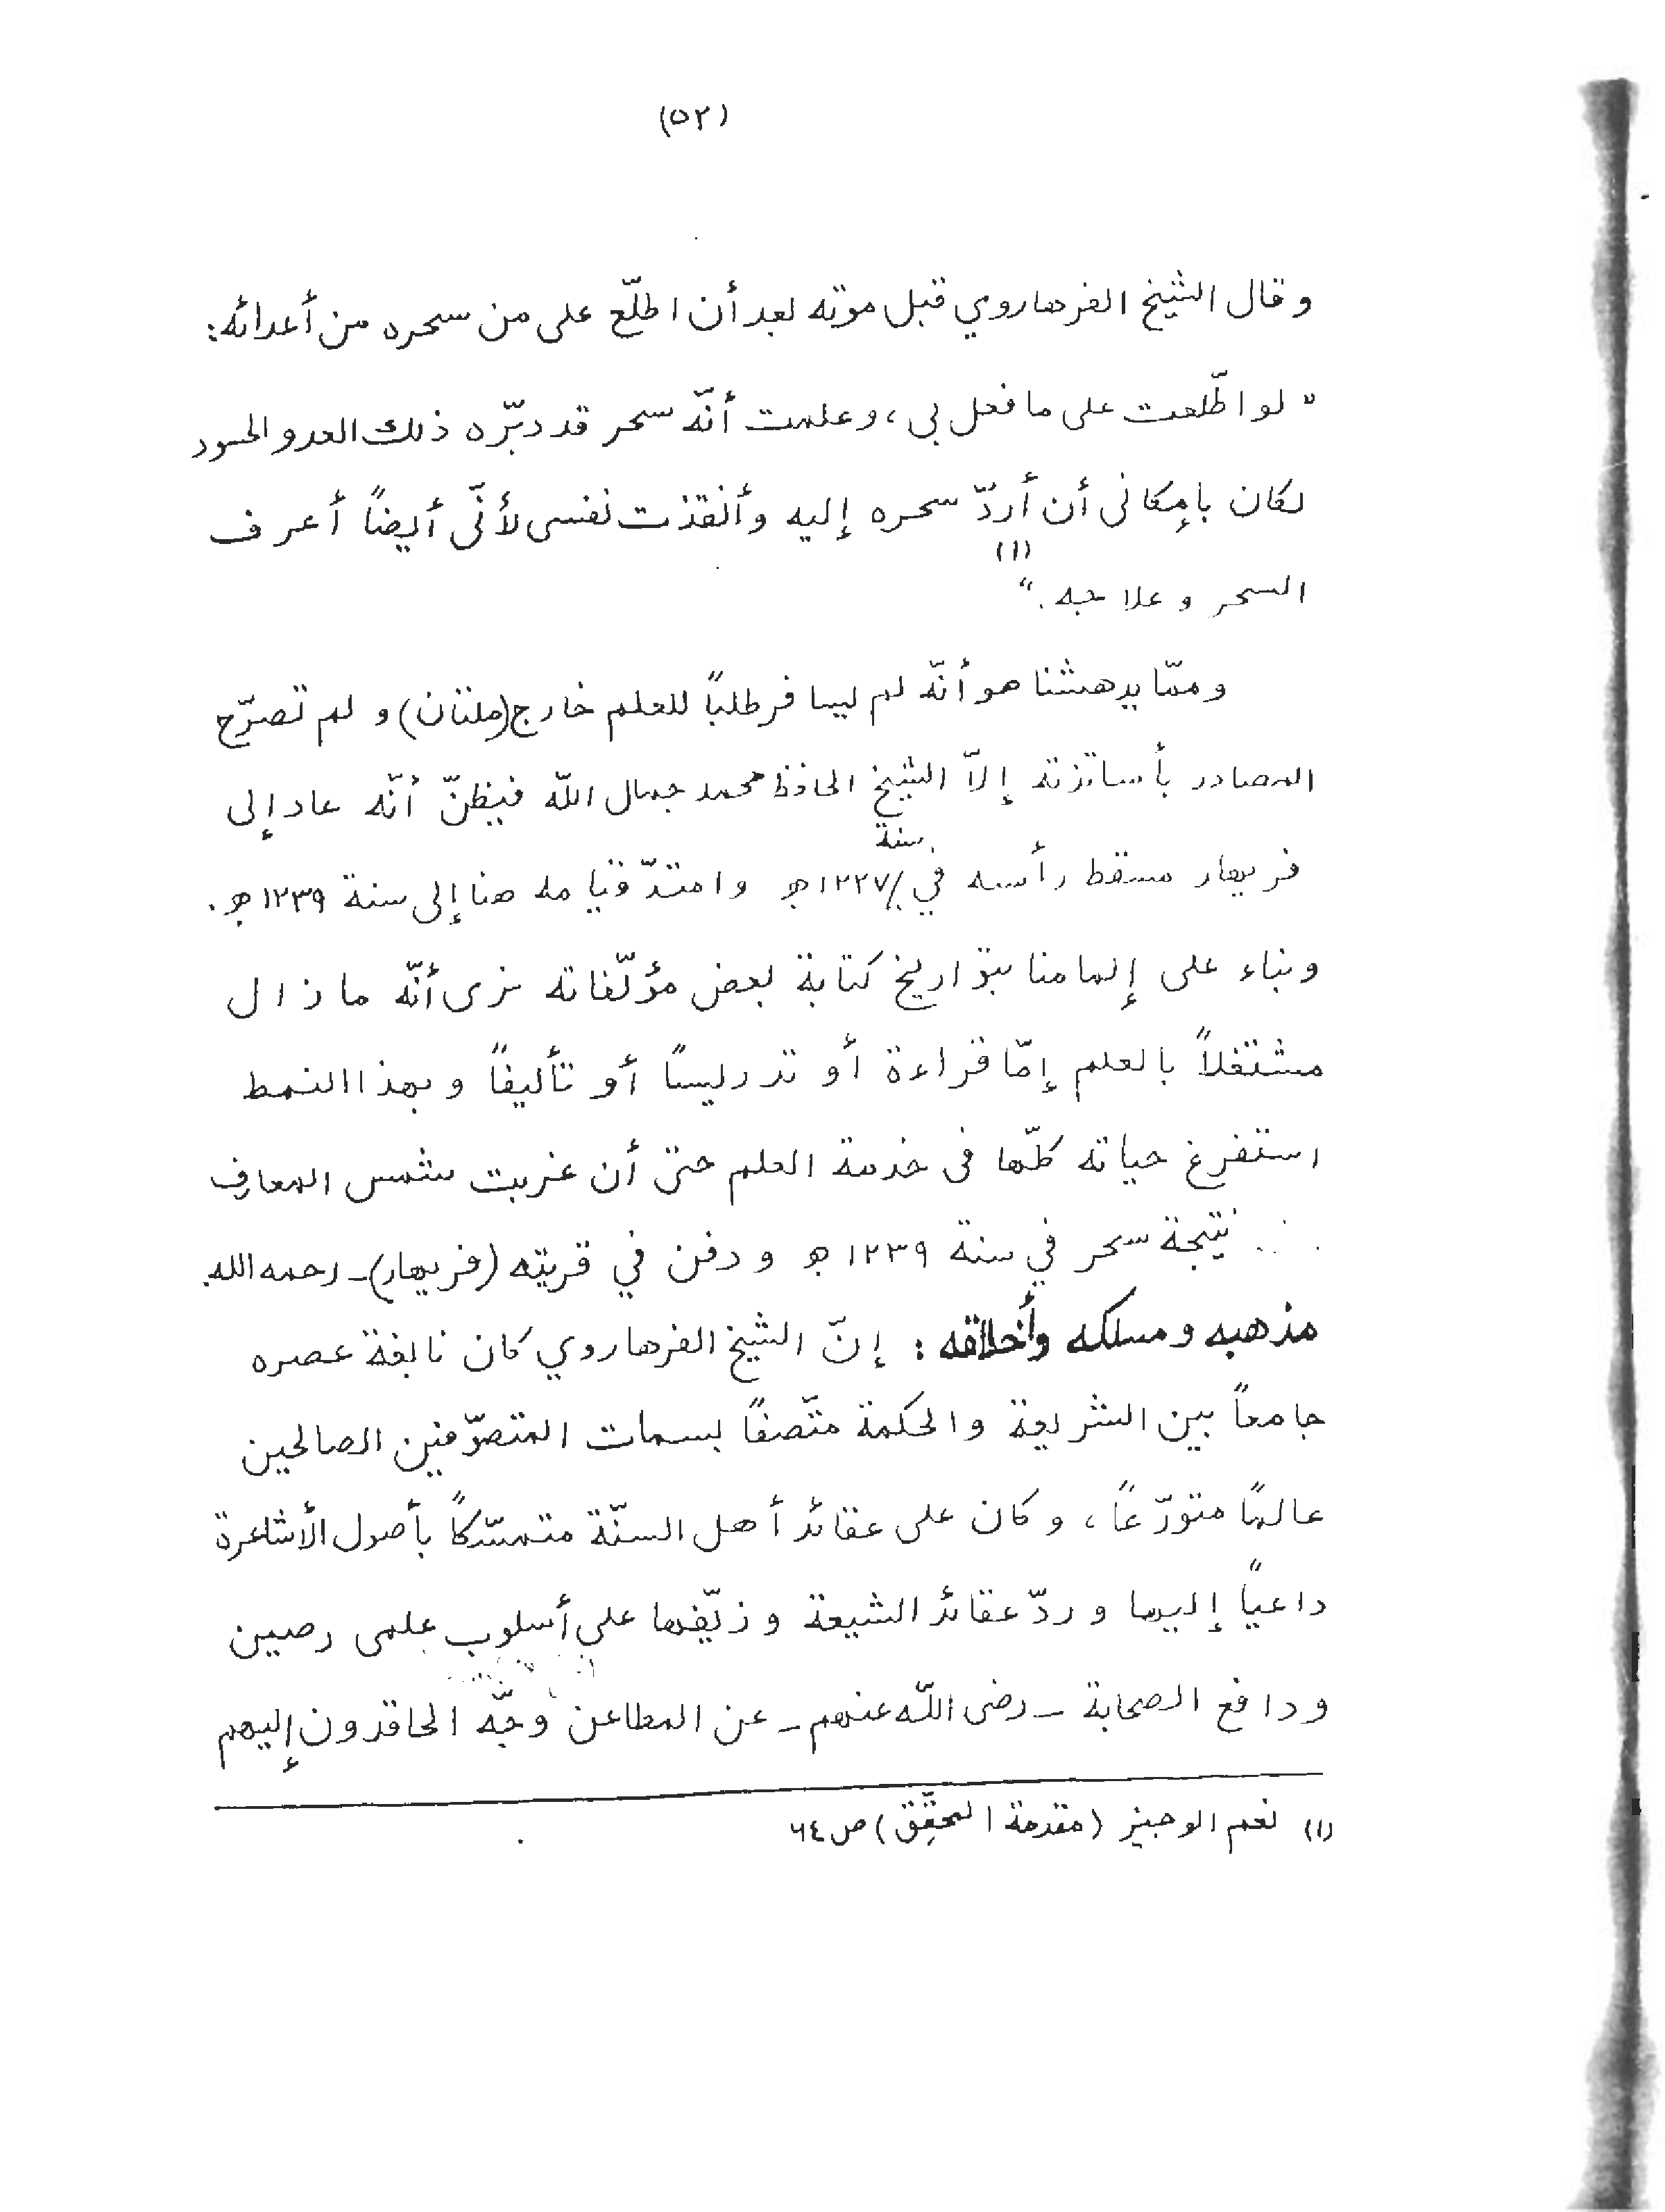 (٥٢)
وقال الشيخ الفرهاروي قبل موته بعد أن اطلّع على من سحره من أعدائه:
" لو اطّلعت على ما فعل بي ، وعلمت أنّه سحر قد دبّره ذلك العدو الحسود
لكان بإمكاني أن أردّ سحره إليه وأنقذت نفسي لأنّي أيضاً أعرف
السحر وعلاجه . " (١)
وممّا يدهشنا هو أنّه لم يسافر طلباً للعلم خارج (ملتان) و لم تصرّح
المصادر بأساتذته إلاّ الشيخ الحافظ محمد جمال اللّه فيظنّ أنّه عاد إلى
فريهار مسقط رأسه في سنة ١٢٢٧هـ وامتدّ قيامه هنا إلى سنة ١٢٣٩هـ .
وبناء على إلمامنا بتواريخ كتابة بعض مؤلّفاته نرى أنّه ما زال
مشتغلاً بالعلم إمّا قراءة أو تدريساً أو تأليفاً وبهذا النمط
استفرغ حياته كلّها في خدمة العلم حتى أن غربت شمس المعارف
نتيجة سحر في سنة ١٢٣٩هـ ودفن في قريته (فريهار) ـ رحمه الله.
مذهبه ومسلكه وأخلاقه : إنّ الشيخ الفرهاروي كان نابغة عصره
جامعاً بين الشريعة والحكمة متّصفاً بسمات المتصوّفين الصالحين
عالماً متورّعاً ، وكان على عقائد أهل السنّة متمسّكاً بأصول الأشاعرة
داعياً إليها وردّ عقائد الشيعة وزيّفها على أسلوب علمي رصين
ودافع الصحابة ـ رضى اللّه عنهم ـ عن المطاعن وجّه الحاقدون إليهم
(١) نعم الوجيز (مقدمة المحقّق) ص ٦٤